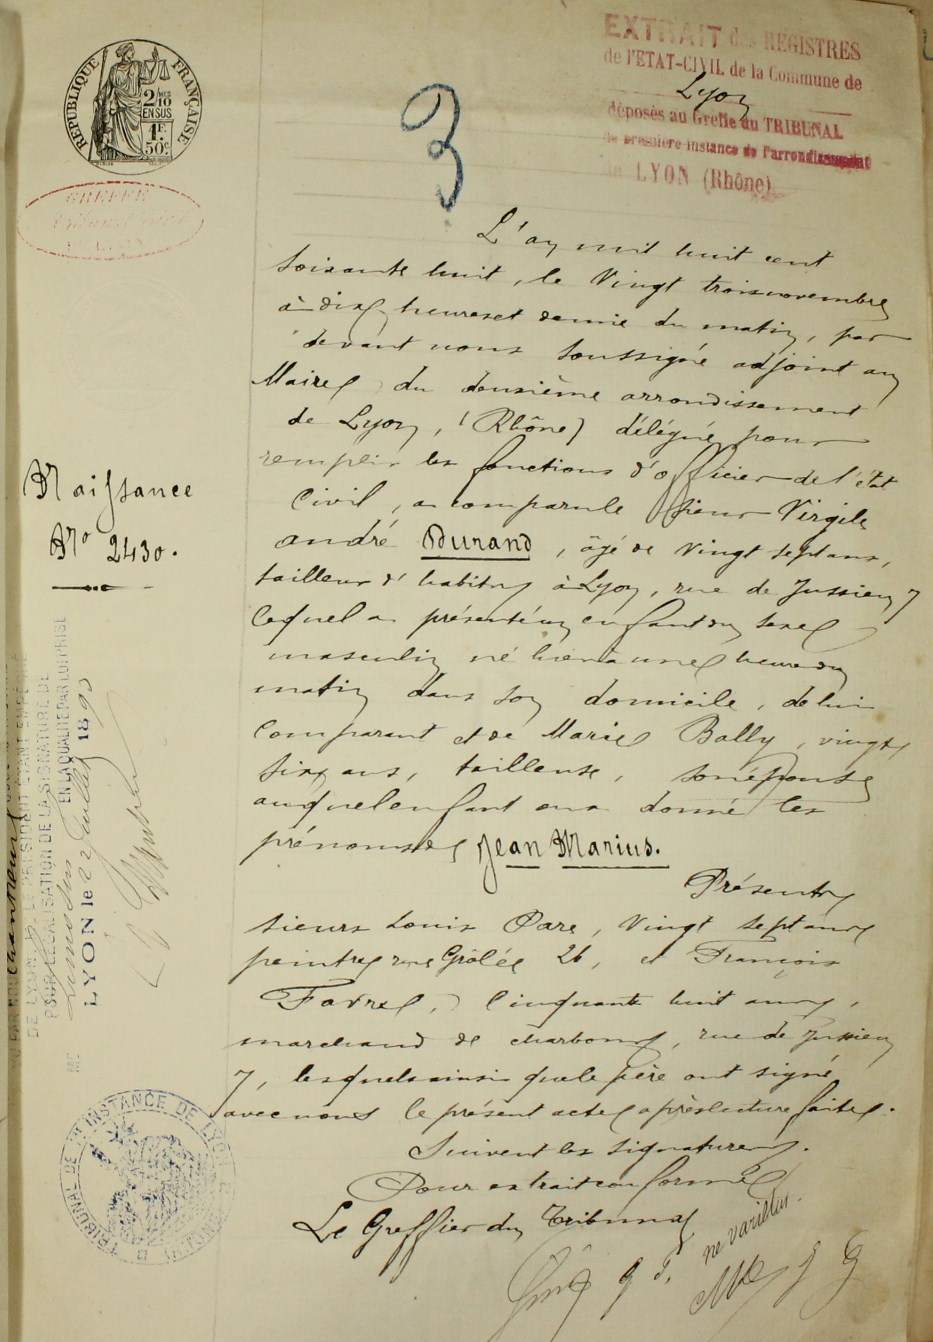 RÉPUBLIQUE FRANÇAISE
2/10
EN SUS
1F.
50c.
GREFFE
3
EXTRAIT des REGISTRES
de l'ETAT-CIVIL de la Commune de
Lyon
déposés au Greffe du TRIBUNAL
de première instance de l'arrondissement
de LYON (Rhône)
L'an mil huit cent
soixante huit, le vingt trois novembre
à dix heures et demie du matin, par
devant nous soussigné adjoint au
Maire du deuxième arrondissement
de Lyon, (Rhône) délégué pour
remplir les fonctions d'officier de l'état
Civil, a comparu le sieur Virgile
andré Durand, âgé de vingt sept ans,
tailleur d'habits à Lyon, rue de Jussieu 7
lequel a présenté un enfant du sexe
masculin né hier à une heure du
matin dans son domicile, de lui
comparant et de Marie Bally, vingt
six ans, tailleuse, son épouse
auquel enfant on a donné les
prénoms de Jean Marius.
Présents
sieurs Louis Pare, vingt sept ans
peintre rue Grôlée 26, et François
Favre, cinquante huit ans,
marchand de charbons, rue de Jussieu
7, lesquels ainsi que le père ont signé
avec nous le présent acte après lecture faite.
Suivent les signatures.
Pour extrait conforme
Le Greffier du Tribunal
ne varietur
Naissance
No 2430.
POUR LÉGALISATION DE LA SIGNATURE DE
EN LA QUALITÉ PAR LUI PRISE
LYON le 22 Juillet 189
TRIBUNAL DE 1re INSTANCE DE LYON